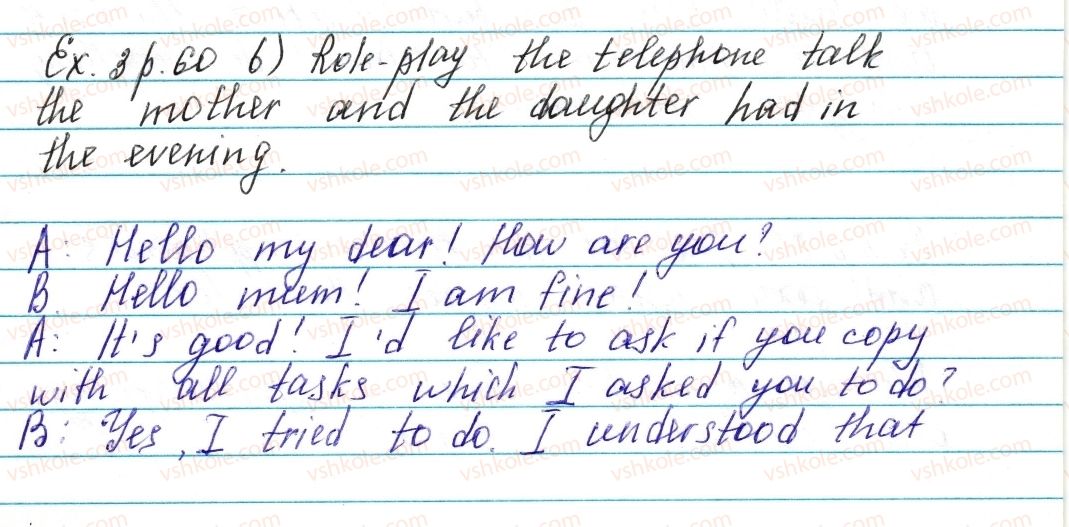 Ex. 3 p. 60 b) Role-play the telephone talk
the mother and the daughter had in
the evening.
A: Hello my dear! How are you?
B Hello mum! I am fine!
A: It's good! I'd like to ask if you copy
with all tasks which I asked you to do?
B: Yes, I tried to do. I understood that